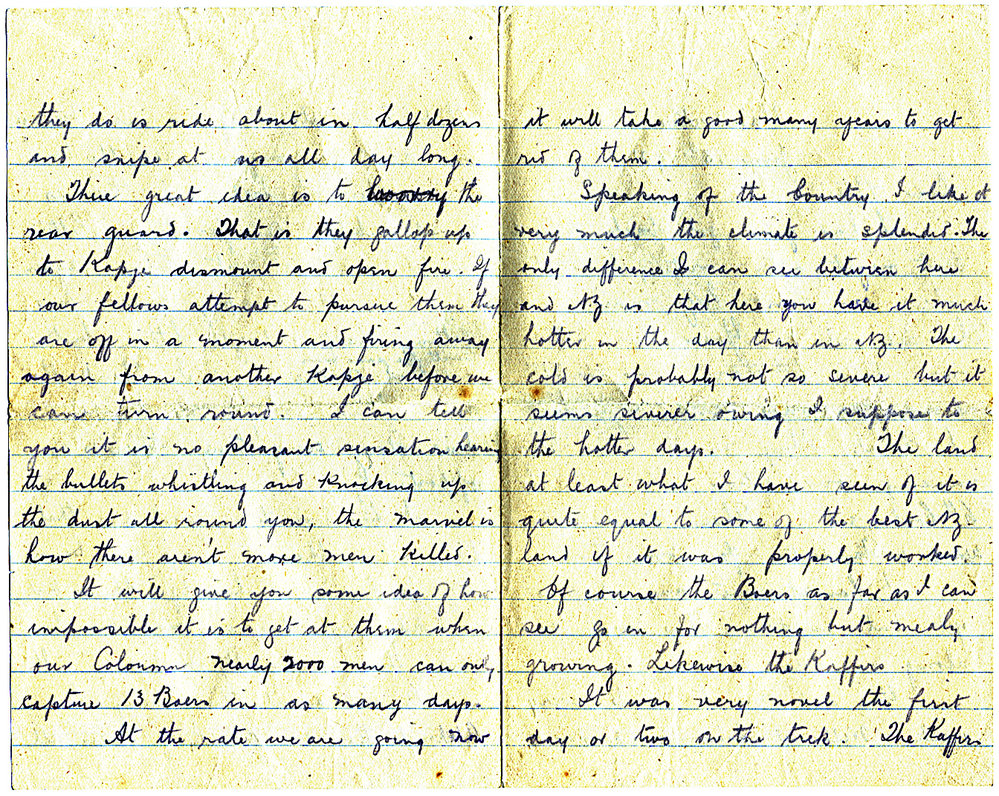 they do is ride about in half dozens
and snipe at us all day long.
Thiere great idea is to the
rear guard. That is they gallop up
to Kopje dismount and open fire. If
our fellows attempt to pursue them they
are off in a moment and firing away
again from another Kopje before we
can turn round. I can tell
you it is no pleasant sensation hearing
the bullets whistling and knocking up
the dust all round you, the marvel is
how there aren't more men killed.
It will give you some idea of how
impossible it is to get at them when
our Coloumn nearly 2000 men can only
capture 13 Boers in as many days.
At the rate we are going now
it will take a good many years to get
rid of them.
Speaking of the Country I like it
very much the climate is splendid. The
only difference I can see between here
and NZ is that here you have it much
hotter in the day than in NZ. The
cold is probably not so severe but it
seems siverer owing I suppose to
the hotter days. The land
at least what I have seen of it is
quite equal to some of the best NZ
land if it was properly worked.
Of course the Boers as far as I can
see go in for nothing but mealy
growing. Likewise the Kaffirs
It was very novel the first
day or two on the trek. The Kaffirs